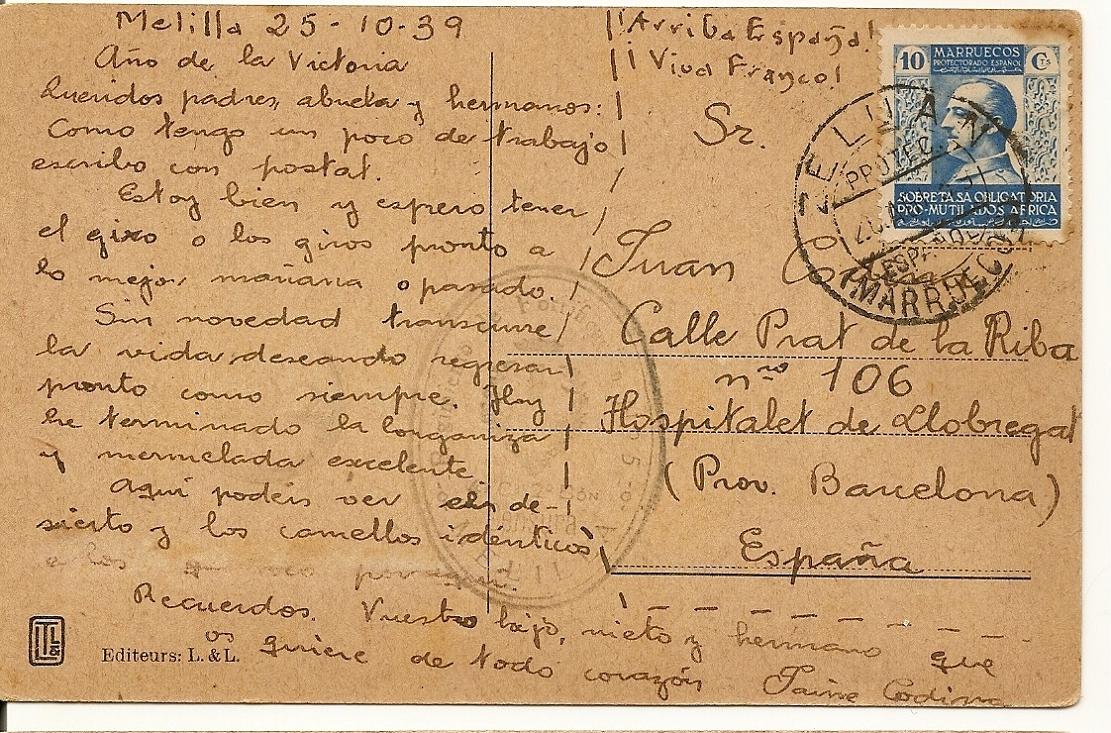 Melilla 25-10-39
Año de la Victoria
Queridos padres, abuela y hermanos:
Como tengo un poco de trabajo
escribo con postal.
Estoy bien y espero tener
el giro o los giros pronto a
lo mejor mañana o pasado.
Sin novedad transcurre
la vida deseando regresar
pronto como siempre. Hoy
he terminado la longaniza
y mermelada excelente
Aquí podéis ver el de-
sierto y los camellos idénticos
a los que
Recuerdos. Vuestro hijo, nieto y hermano que
os quiere de todo corazón Jaime Codina
Editeurs: L. & L.
L&L
¡¡Arriba España!
¡¡Viva Franco!
Sr.
Juan Co
Calle Prat de la Riba
nro 106
Hospitalet de Llobregat
(Prov. Barcelona)
España
10 Cs
MARRUECOS
PROTECTORADO ESPAÑOL
SOBRETASA OBLIGATORIA
PRO-MUTILADOS AFRICA
ZELUAN
PROTEC
ESPAÑOL
(MARRUECOS)
MELILLA